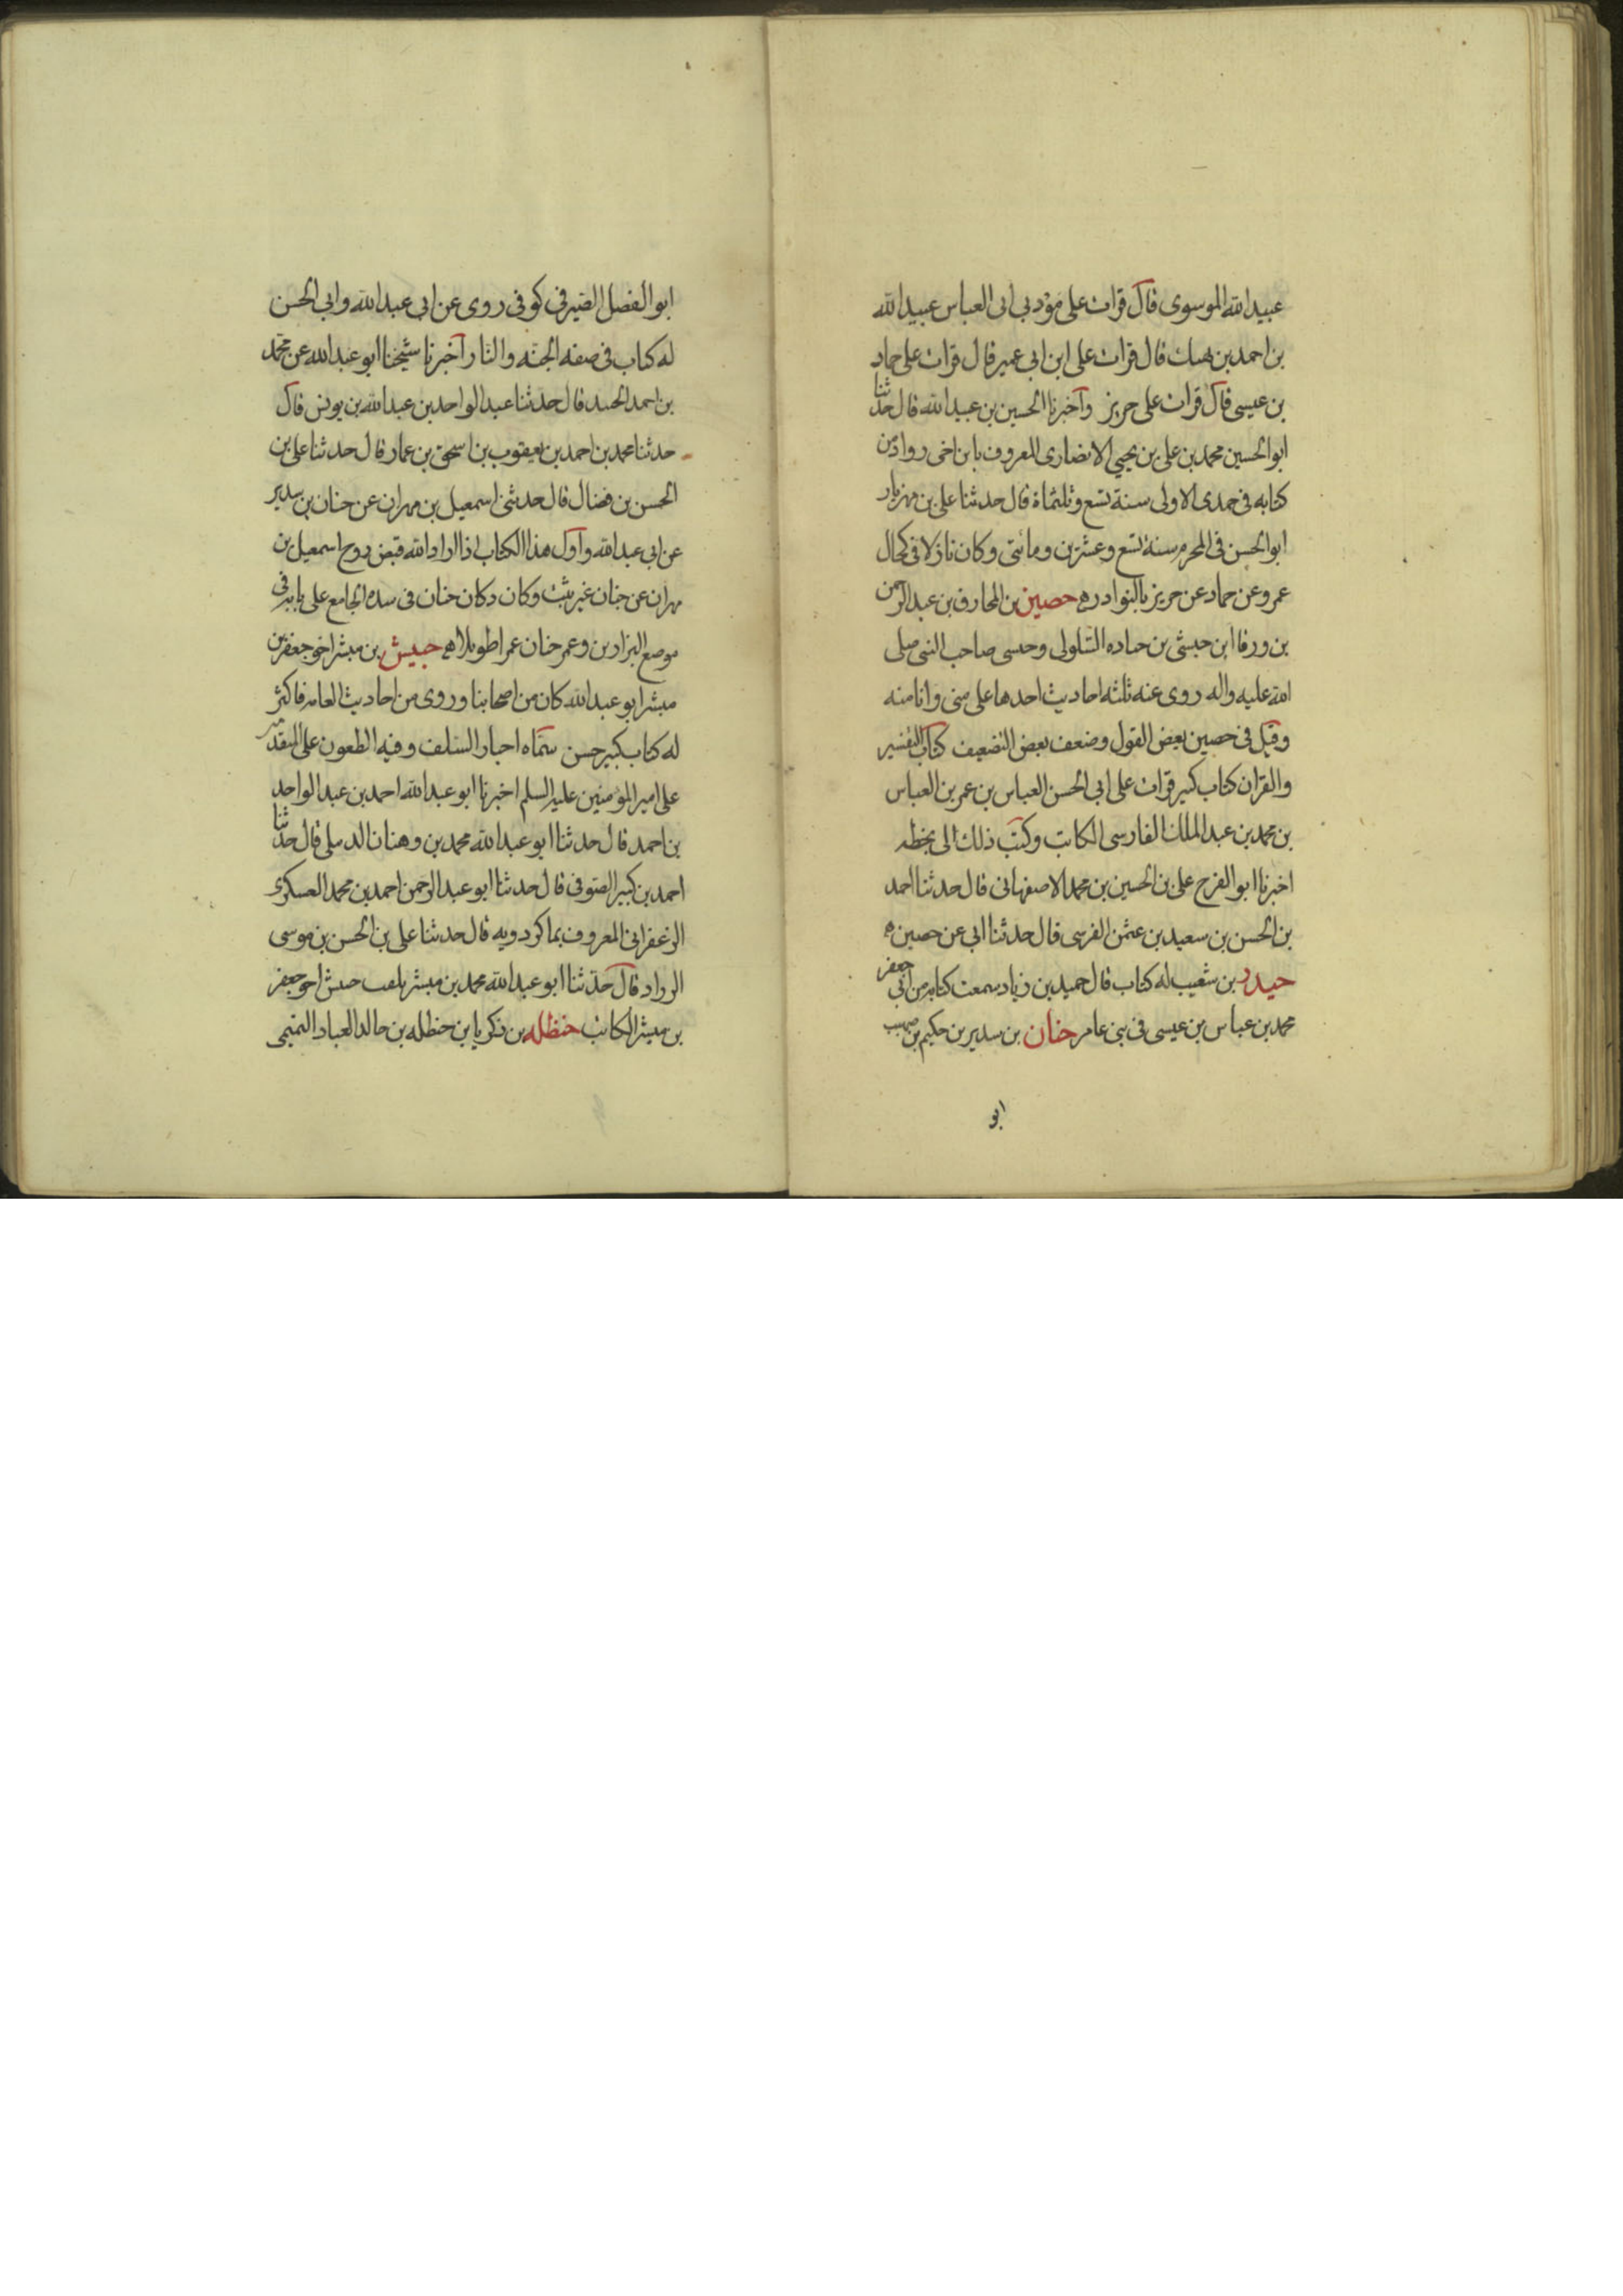 عبيد الله الموسوى قال قرات على مؤدبى ابى العباس عبيد الله
بن احمد بن نهيك قال قرات على ابن ابى عمير قال قرات على حماد
بن عيسى قال قرات على حريز واخبرنا الحسين بن عبيد الله قال حدثنا
ابو الحسين محمد بن على بن يحيى الانصارى المعروف بابن اخى رواد من
كتابه فى جمدى الاولى سنة تسع وثلثماة قال حدثنا على بن مهزيار
ابو الحسن فى المحرم سنة تسع وعشرين ومائتى وكان نازلا فى
عمرو عن حماد عن حريز بالنوادر حصين بن المخارق بن عبد الرحمن
بن ورقا ابن حبشى بن جناده السلولى وحبشى صاحب النبى صلى
الله عليه واله روى عنه ثلثه احاديث احدها على منى وانا منه
وقيل فى حصين بعض القول وضعف بعض التضعيف كتاب التفسير
والقران كتاب كبير قرات على ابى الحسن العباس بن عمر بن العباس
بن محمد بن عبد الملك الفارسى الكاتب وكتب ذلك الى بخطه
اخبرنا ابو الفرج على بن الحسين بن محمد الاصفهانى قال حدثنا احمد
بن الحسن بن سعيد بن عثمن القرسى قال حدثنا ابى عن حصين ه
حيدر بن شعيب له كتاب قال حميد بن زياد سمعت كتابه من ابى جعفر
محمد بن عباس بن عيسى فى بنى عامر حنان بن سدير بن حكيم بن صهيب
ابو
ابو الفضل الصيرفى كوفى روى عن ابى عبد الله وابى الحسن
له كتاب فى صفه الجنه والنار اخبرنا شيخنا ابو عبد الله عن محمد
بن احمد الجنيد قال حدثنا عبد الواحد بن عبد الله بن يونس قال
حدثنا محمد بن احمد بن يعقوب بن اسحق بن عمار قال حدثنا على بن
الحسن بن فضال قال حدثنى اسمعيل بن مهران عن حنان بن سدير
عن ابى عبد الله واول هذا الكتاب اذا اراد الله قبض روح اسمعيل بن
مهران عن حنان غير ثبت وكان دكان حنان فى سده الجامع على بابه فى
موضع البزازين وعمر حنان عمرا طويلا حبيش بن مبشر اخو جعفر بن
مبشر ابو عبد الله كان من اصحابنا وروى من احاديث العامه فاكثر
له كتاب كبير حسن سماه اخبار السلف وفيه الطعون على المتقدمين
على امير المؤمنين عليه السلم اخبرنا ابو عبد الله احمد بن عبد الواحد
بن احمد قال حدثنا ابو عبد الله محمد بن وهنان الدبيلى قال حدثنا
احمد بن كبير الصوفى قال حدثنا ابو عبد الرحمن احمد بن محمد العسكرى
الزعفرانى المعروف بماكردويه قال حدثنا على بن الحسن بن موسى
الرراد قال حدثنا ابو عبد الله محمد بن مبشر يلقب حبيش اخو جعفر
بن مبشر الكاتب حنظله بن زكريا بن حنظله بن خالد العباد التميمى